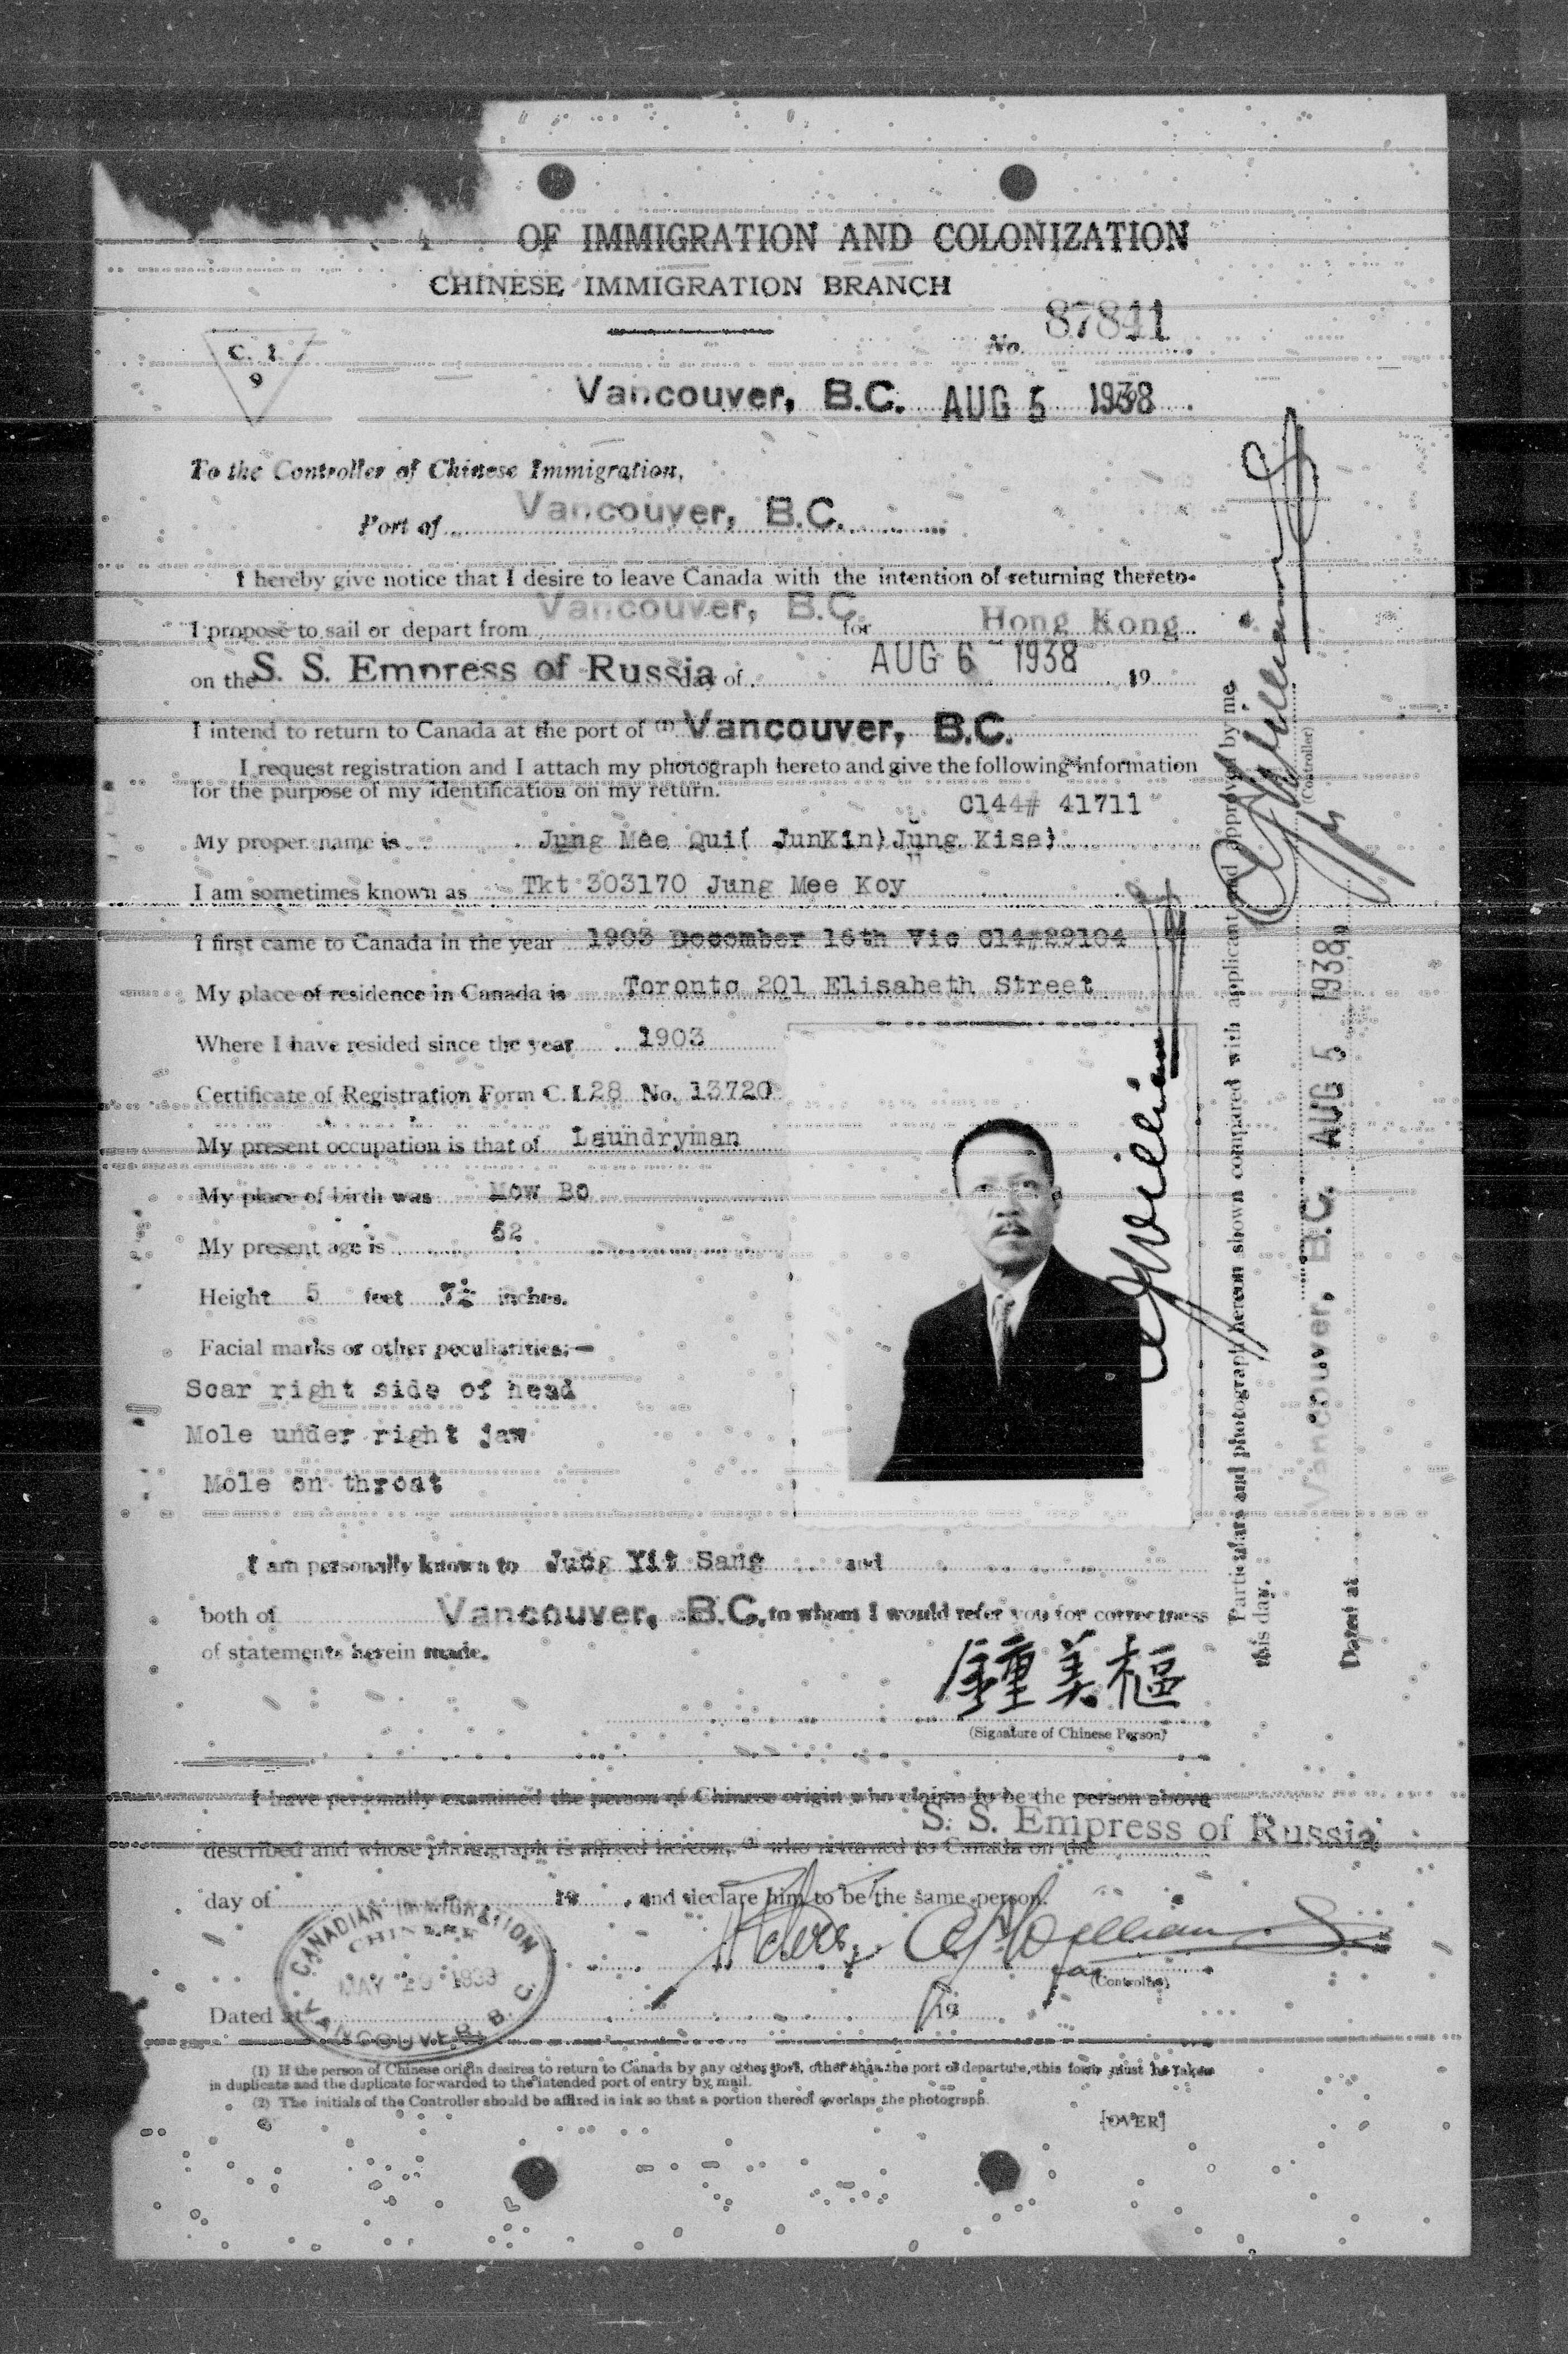 OF IMMIGRATION AND COLONIZATION
CHINESE IMMIGRATION BRANCH
No. 87841
C. I.
9
Vancouver, B.C. AUG 5 1938
To the Controller of Chinese Immigration,
Port of Vancouver, B.C.
I hereby give notice that I desire to leave Canada with the intention of returning thereto.
I propose to sail or depart from Vancouver, B.C. for Hong Kong
on the S. S. Empress of Russia day of AUG 6 1938 19
I intend to return to Canada at the port of (1) Vancouver, B.C.
I request registration and I attach my photograph hereto and give the following information
for the purpose of my identification on my return.
C144# 41711
My proper name is Jung Mee Qui( JunKin)Jung Kise)
I am sometimes known as Tkt 303170 Jung Mee Koy
I first came to Canada in the year 1903 December 16th Vic C14#29104
My place of residence in Canada is Toronto 201 Elisabeth Street
Where I have resided since the year 1903
Certificate of Registration Form C. I. 28 No. 13720
My present occupation is that of Laundryman
My place of birth was Mow Bo
My present age is 52
Height 5 feet 7½ inches.
Facial marks or other peculiarities:—
Scar right side of head
Mole under right jaw
Mole on throat
I am personally known to Jung Yit Sang and
both of Vancouver, B.C. to whom I would refer you for correctness
of statements herein made.
鍾美樞
(Signature of Chinese Person)
I have personally examined the person of Chinese origin who claims to be the person above
S. S. Empress of Russia
described and whose photograph is affixed hereon, (2) who returned to Canada on the
day of 19 , and declare him to be the same person.
(Controller)
CANADIAN IMMIGRATION
CHINESE
MAY 29 1939
VANCOUVER B. C.
Dated at 19
(1) If the person of Chinese origin desires to return to Canada by any other port, other than the port of departure, this form must be taken
in duplicate and the duplicate forwarded to the intended port of entry by mail.
(2) The initials of the Controller should be affixed in ink so that a portion thereof overlaps the photograph.
[OVER]
Particulars and photograph hereon shown compared with applicant and approved by me
this day.
(Controller)
Dated at Vancouver, B.C. AUG 5 1938 19